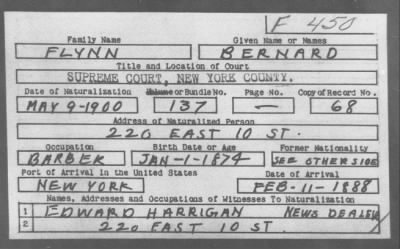 F 450
Family Name Given Name or Names
FLYNN BERNARD
Title and Location of Court
SUPREME COURT, NEW YORK COUNTY.
Date of Naturalization Volume or Bundle No. Page No. Copy of Record No.
MAY 9-1900 137 — 68
Address of Naturalized Person
220 EAST 10 ST.
Occupation Birth Date or Age Former Nationality
BARBER JAN-1-1874 SEE OTHERSIDE
Port of Arrival in the United States Date of Arrival
NEW YORK FEB-11-1888
Names, Addresses and Occupations of Witnesses To Naturalization
1 EDWARD HARRIGAN NEWS DEALER
2 220 EAST 10 ST.